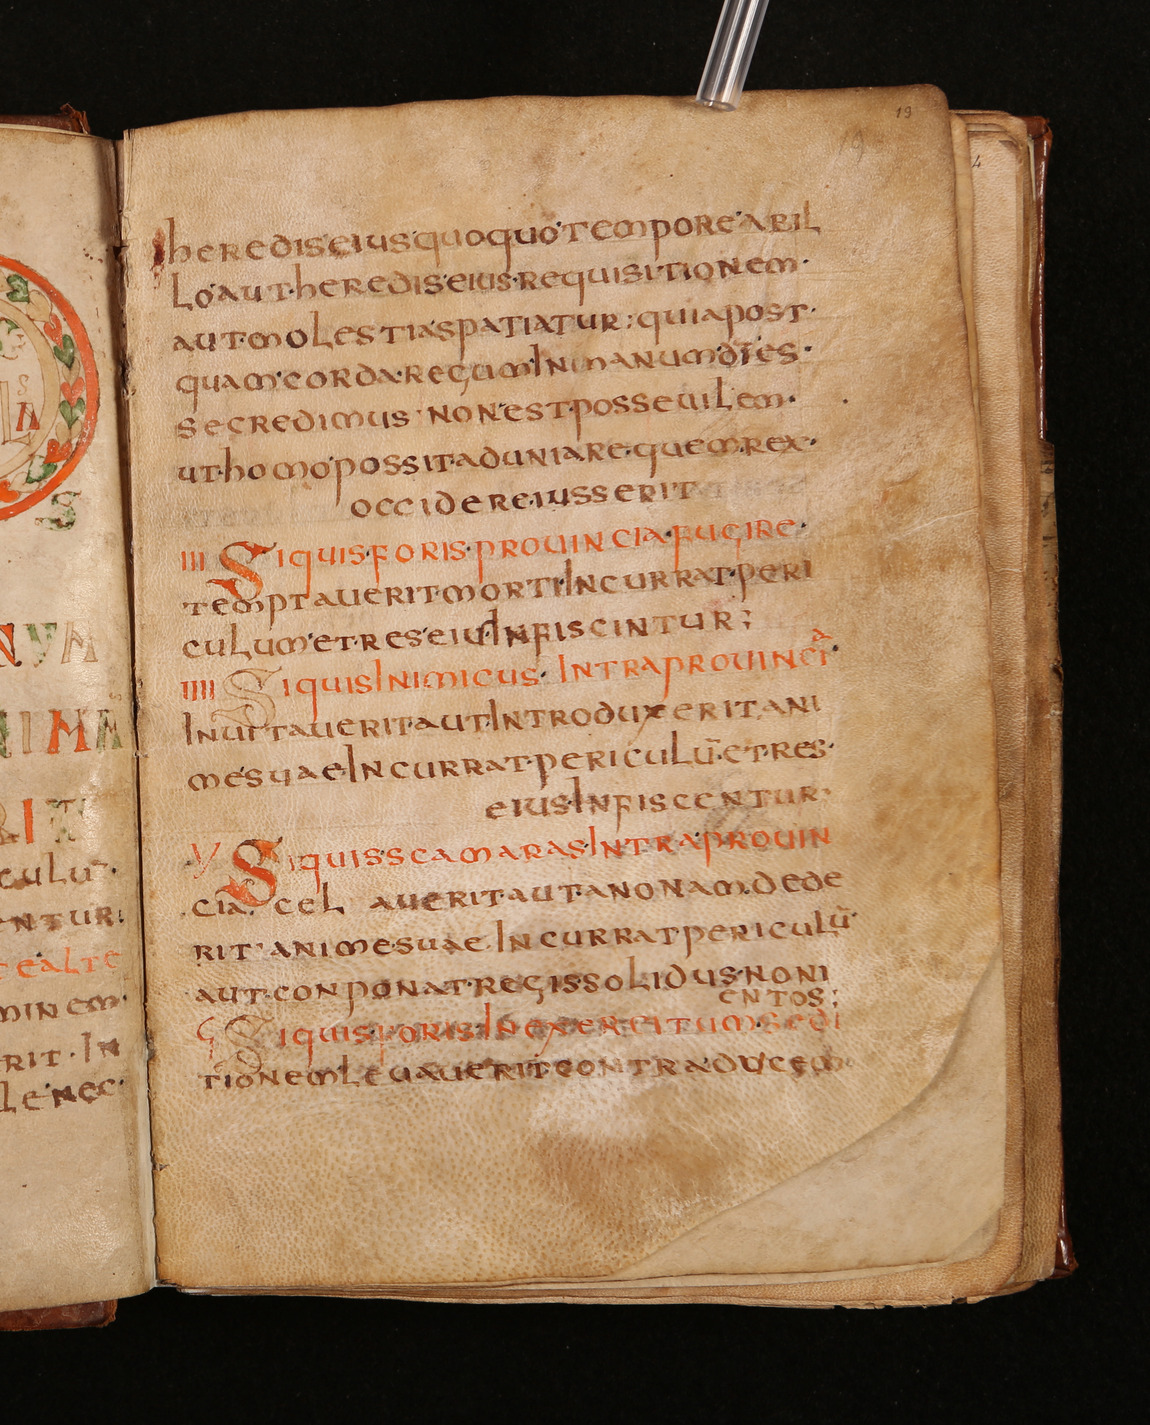 19
19
heredis·eius·quoquo·tempore·ab il
lo·aut·heredis·eius·requisitionem·
aut·molestias patiatur; quia post·
quam·corda·regum·In manum·dī es·
se credimus· non·est·posse uilem·
ut·homo·possit·aduniare·quem·rex·
occidere·iusserit
III Si quis·foris·prouincia·fugire·
temptauerit·morti·Incurrat·peri
culum·et·res·eius·Infiscintur;
IIII Si quis Inimicus· Intra prouinci a
Inuitauerit·aut·Introduxerit·ani
me·suae·Incurrat·periculū·et·res·
eius·Infiscentur·
V Si quis·scamaras·Intra·prouin
cia· cel auerit·aut·anonam·dede
rit· anime·suae·Incurrat periculū·
aut·conponat·regis solidus·noni
entos;
ς Si quis·foris·In exercitum·sedi
tionem·leuauerit·contra·ducem
S
NVM
NIMA
RIT
culū·
entur·
ealte
minem·
rit·In
le·nec·